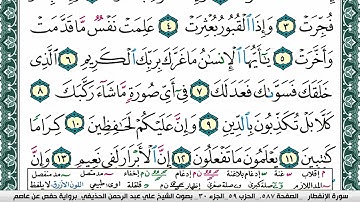 فُجِّرَتْ ٣ وَإِذَا ٱلْقُبُورُ بُعْثِرَتْ ٤ عَلِمَتْ نَفْسٌ مَّا قَدَّمَتْ
وَأَخَّرَتْ ٥ يَٰٓأَيُّهَا ٱلْإِنسَٰنُ مَا غَرَّكَ بِرَبِّكَ ٱلْكَرِيمِ ٦ ٱلَّذِى
خَلَقَكَ فَسَوَّىٰكَ فَعَدَلَكَ ٧ فِىٓ أَىِّ صُورَةٍ مَّا شَآءَ رَكَّبَكَ ٨
كَلَّا بَلْ تُكَذِّبُونَ بِٱلدِّينِ ٩ وَإِنَّ عَلَيْكُمْ لَحَٰفِظِينَ ١٠ كِرَامًا
كَٰتِبِينَ ١١ يَعْلَمُونَ مَا تَفْعَلُونَ ١٢ إِنَّ ٱلْأَبْرَارَ لَفِى نَعِيمٍ ١٣ وَإِنَّ
سورة الإنفطار الصفحة ٥٨٧ الجزء ٣٠ الحزب ٥٩ بصوت الشيخ علي عبد الرحمن الحذيفي برواية حفص عن عاصم